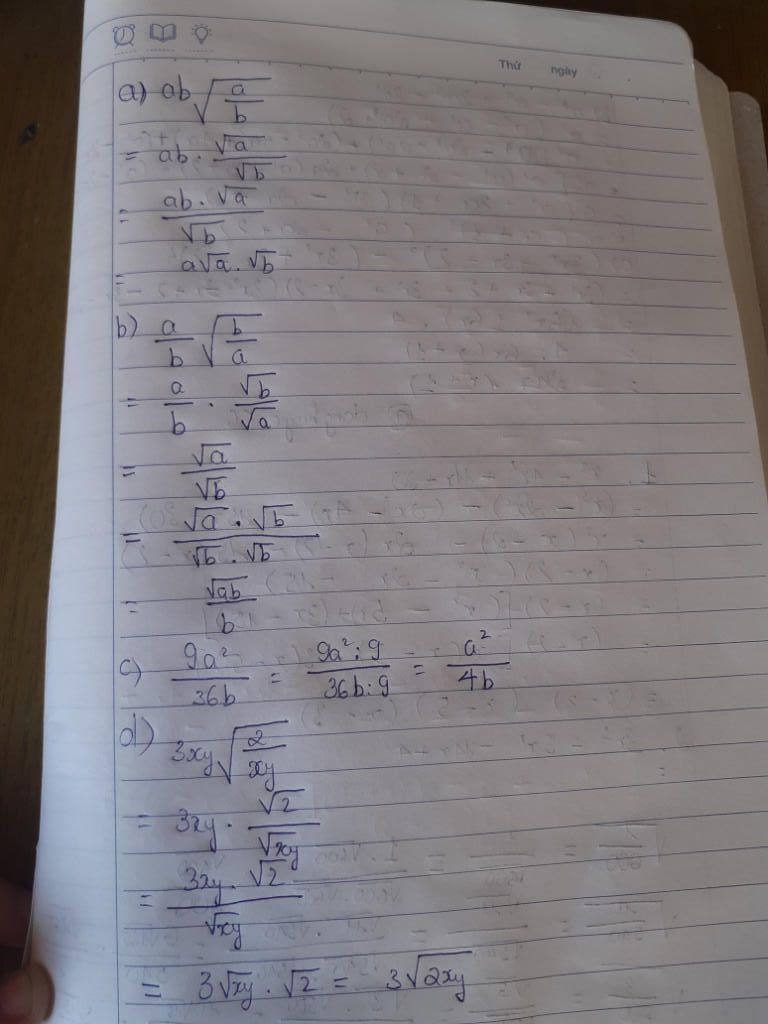 Thứ ngày
a) ab√(a/b)
= ab . √a/√b
= ab . √a/√b
= a√a . √b
b) a/b √(b/a)
= a/b . √b/√a
= √a/√b
= √a . √b/√b . √b
= √ab/b
c) 9a²/36b = 9a²:9/36b:9 = a²/4b
d) 3xy√(2/xy)
= 3xy . √2/√xy
= 3xy . √2/√xy
= 3√xy . √2 = 3√2xy